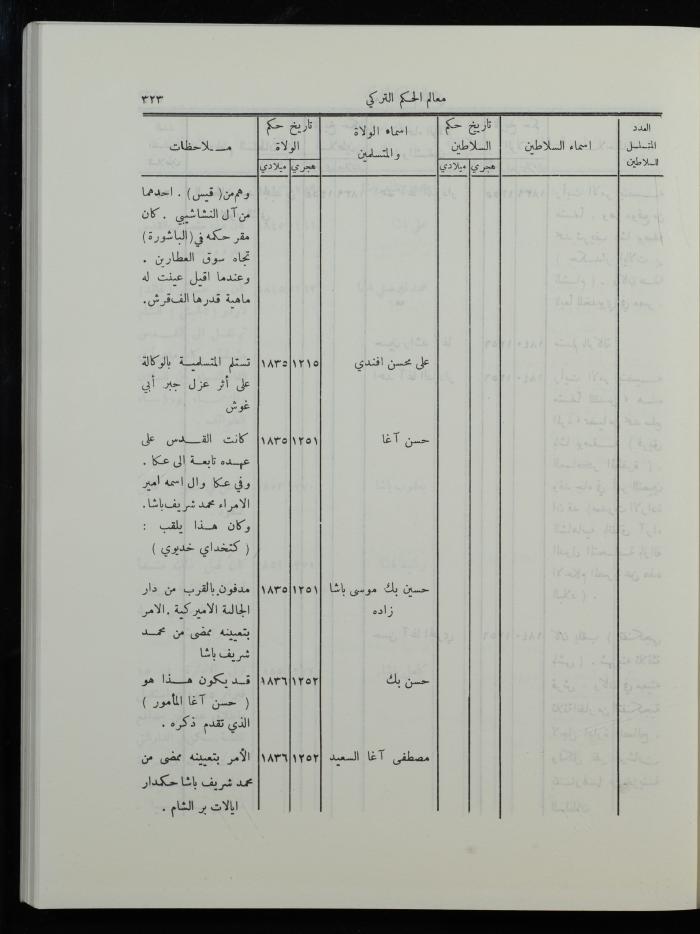 معالم الحكم التركي
٣٢٣
العدد المتسلسل للسلاطين
اسماء السلاطين
تاريخ حكم السلاطين
هجري ميلادي
اسماء الولاة والمتسلمين
تاريخ حكم الولاة
هجري ميلادي
مـــلاحظات
وهم من ( قيس ) . احدهما
من آل النشاشيبي . كان
مقر حكمه في (الباشورة)
تجاه سوق العطارين .
وعندما اقيل عينت له
ماهية قدرها الف قرش.
على محسن افندي
١٢١٥ ١٨٣٥
تستلم المتسلمية بالوكالة
على أثر عزل جبر أبي
غوش
حسن آغا
١٢٥١ ١٨٣٥
كانت القدس على
عهده تابعة الى عكا .
وفي عكا وال اسمه امير
الامراء محمد شريف باشا.
وكان هذا يلقب :
( كتخداي خديوي )
حسين بك موسى باشا
زاده
١٢٥١ ١٨٣٥
مدفون بالقرب من دار
الجالية الاميركية . الامر
بتعيينه ممضى من محمد
شريف باشا
حسن بك
١٢٥٢ ١٨٣٦
قد يكون هذا هو
( حسن آغا المأمور )
الذي تقدم ذكره .
مصطفى آغا السعيد
١٢٥٢ ١٨٣٦
الأمر بتعيينه ممضى من
محمد شريف باشا حكمدار
ايالات بر الشام .